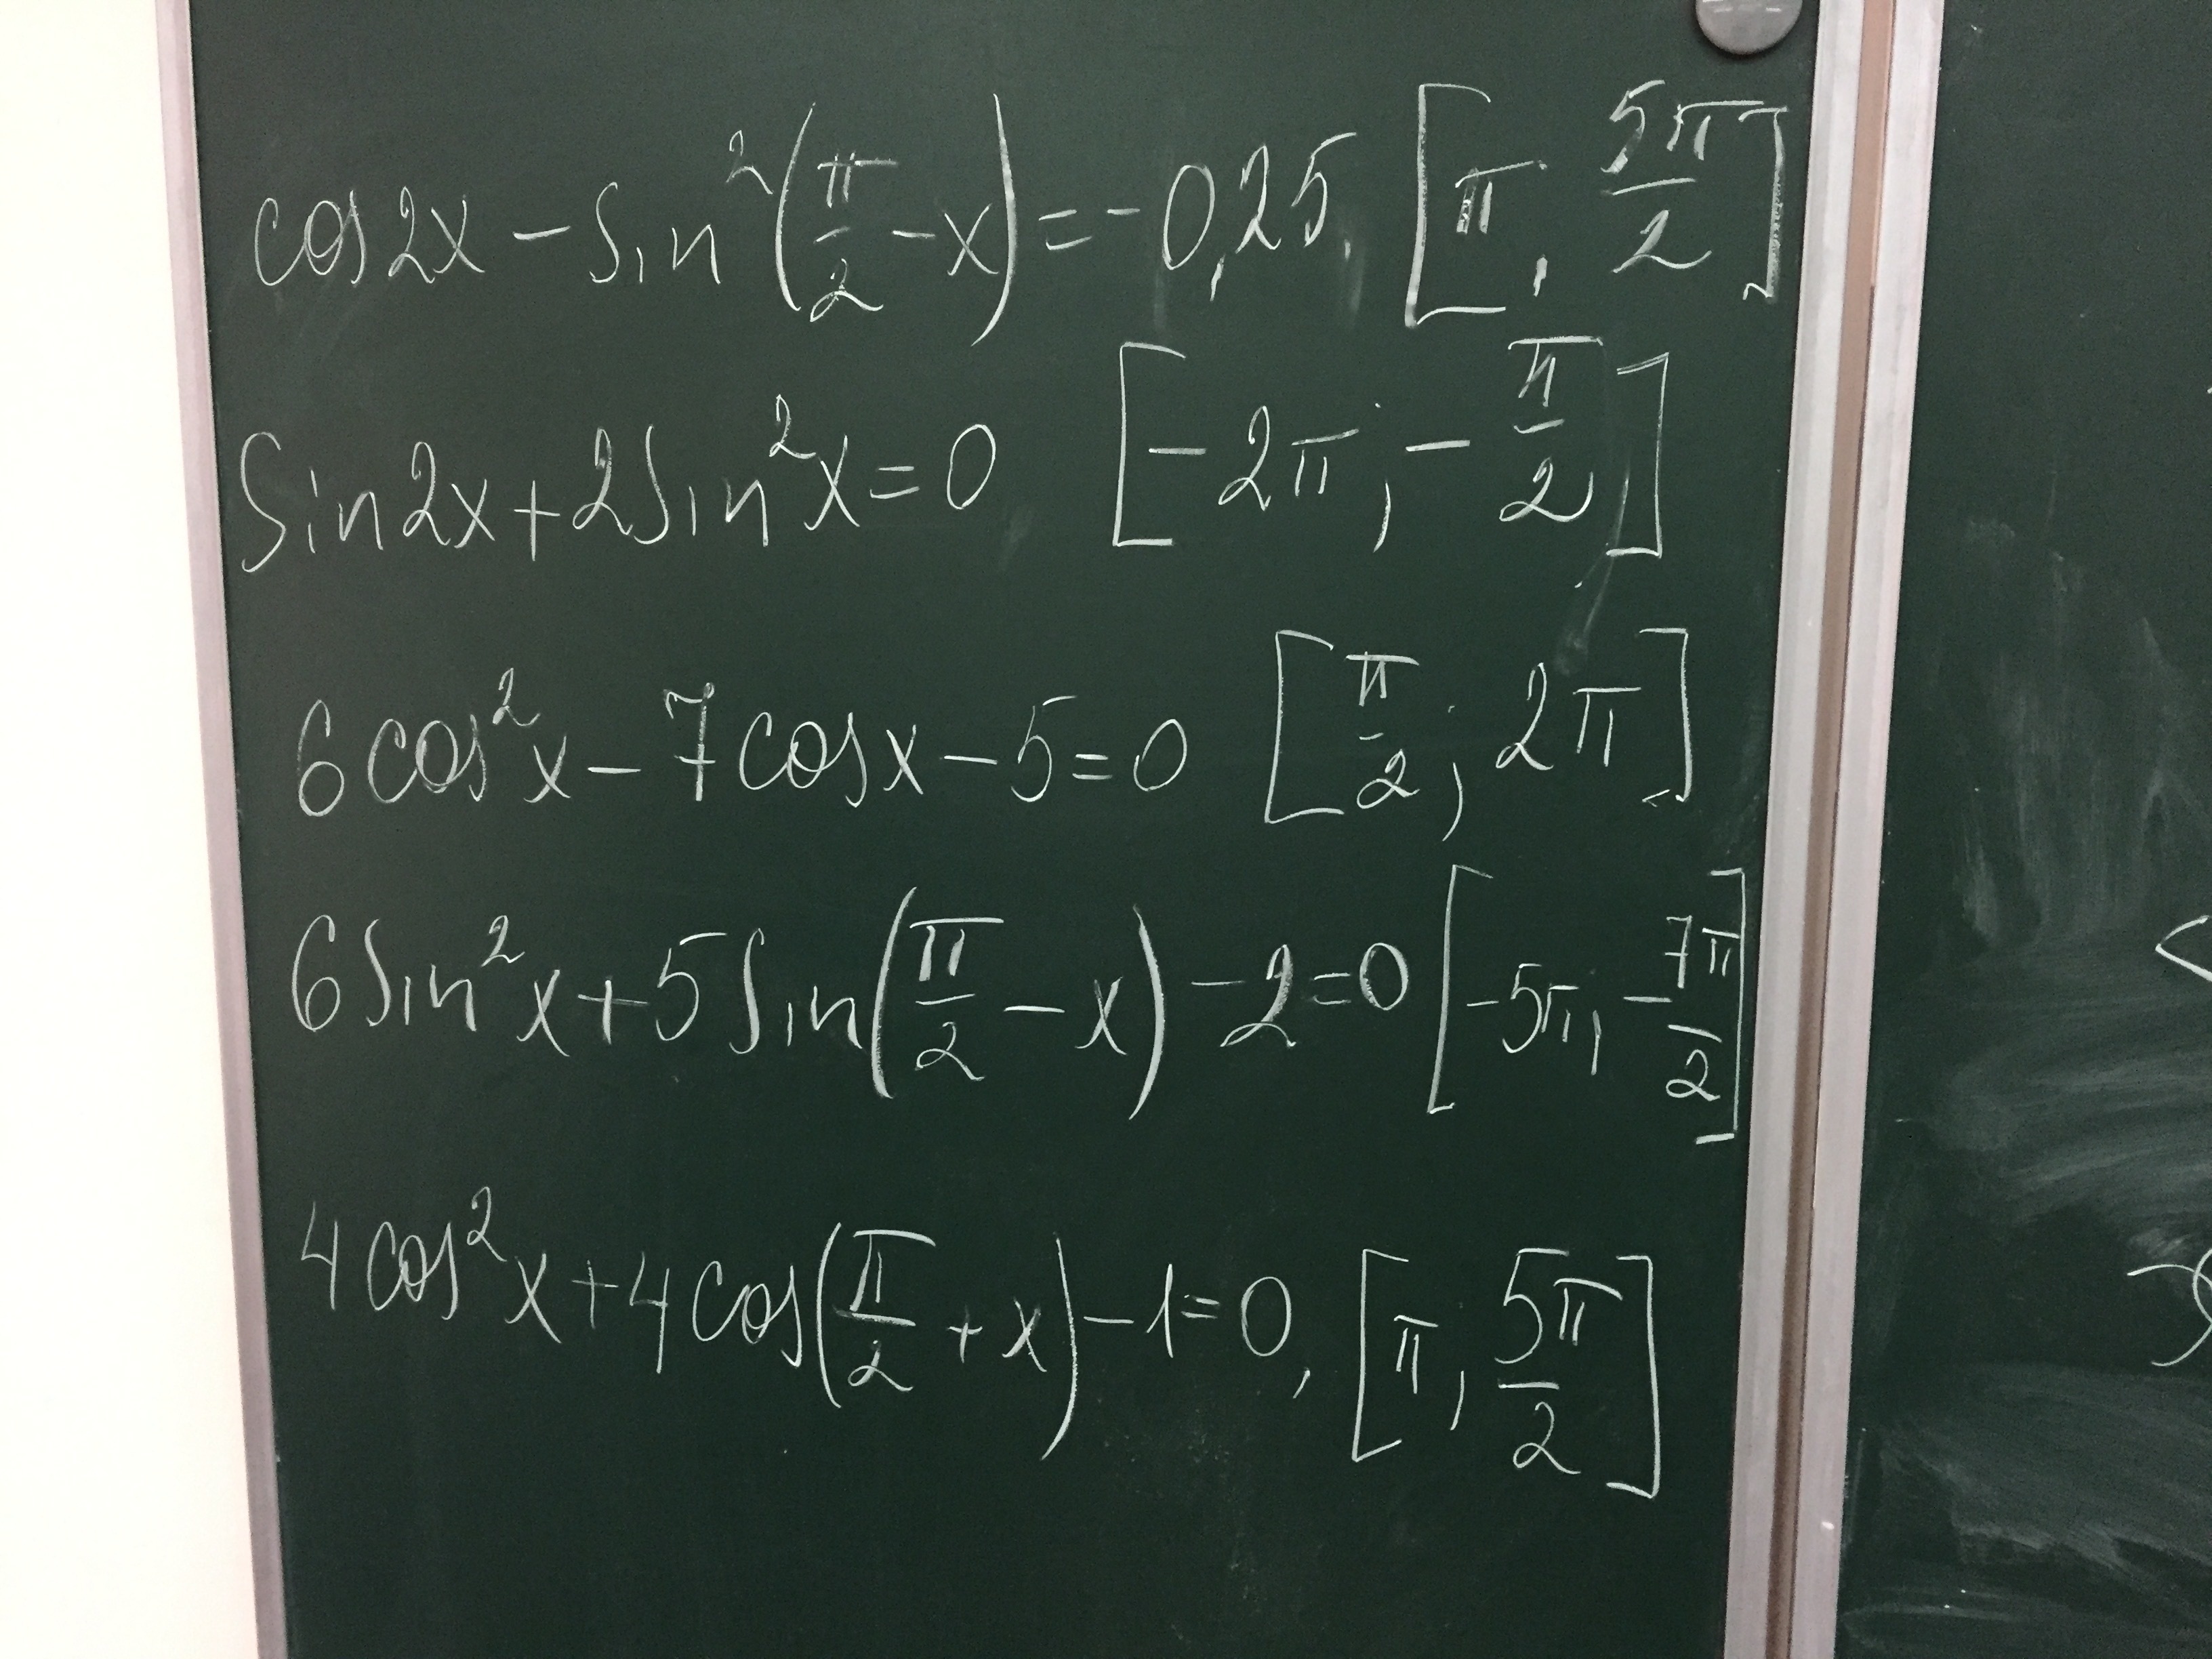 cos2x − sin²(π/2 − x) = −0,25, [π, 5π/2]
sin2x + 2sin²x = 0 [−2π; −π/2]
6cos²x − 7cosx − 5 = 0 [π/2; 2π]
6sin²x + 5sin(π/2 − x) − 2 = 0 [−5π, −7π/2]
4cos²x + 4cos(π/2 + x) − 1 = 0, [π; 5π/2]